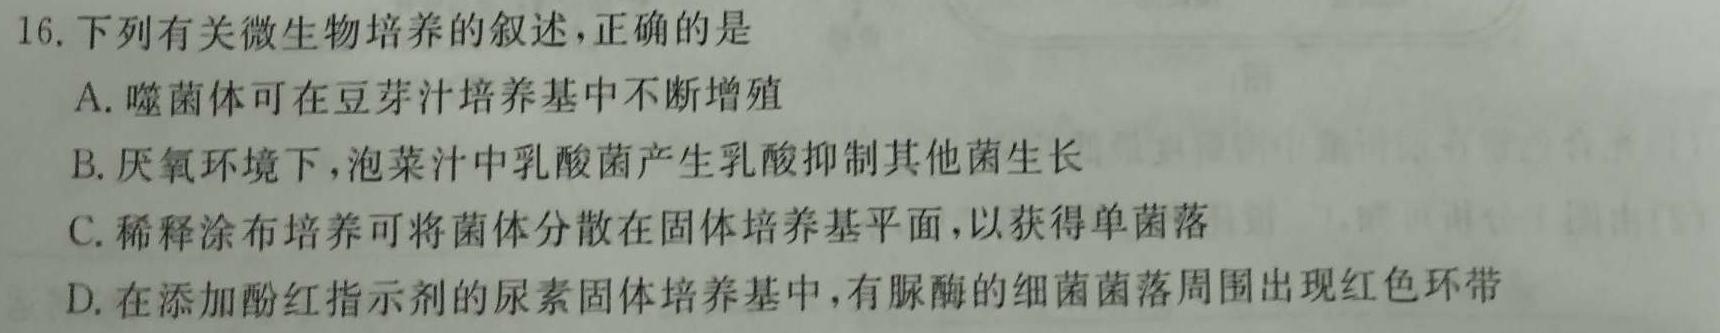 16. 下列有关微生物培养的叙述,正确的是
A. 噬菌体可在豆芽汁培养基中不断增殖
B. 厌氧环境下,泡菜汁中乳酸菌产生乳酸抑制其他菌生长
C. 稀释涂布培养可将菌体分散在固体培养基平面,以获得单菌落
D. 在添加酚红指示剂的尿素固体培养基中,有脲酶的细菌菌落周围出现红色环带